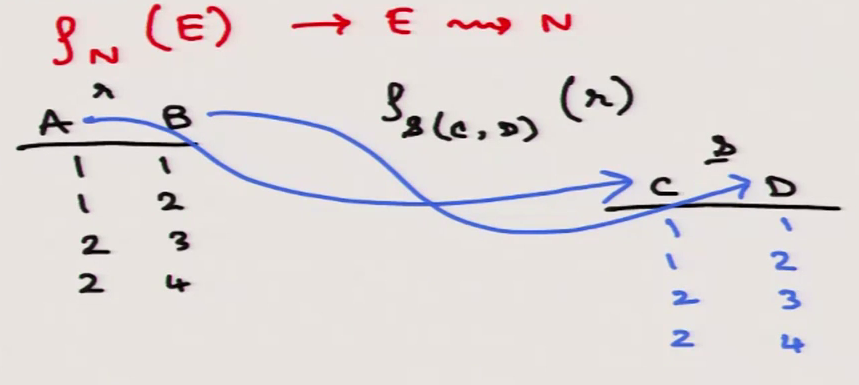 ρ_N (E) → E ⇝ N
r
A B
1 1
1 2
2 3
2 4
ρ_s(C, D) (r)
s
C D
1 1
1 2
2 3
2 4